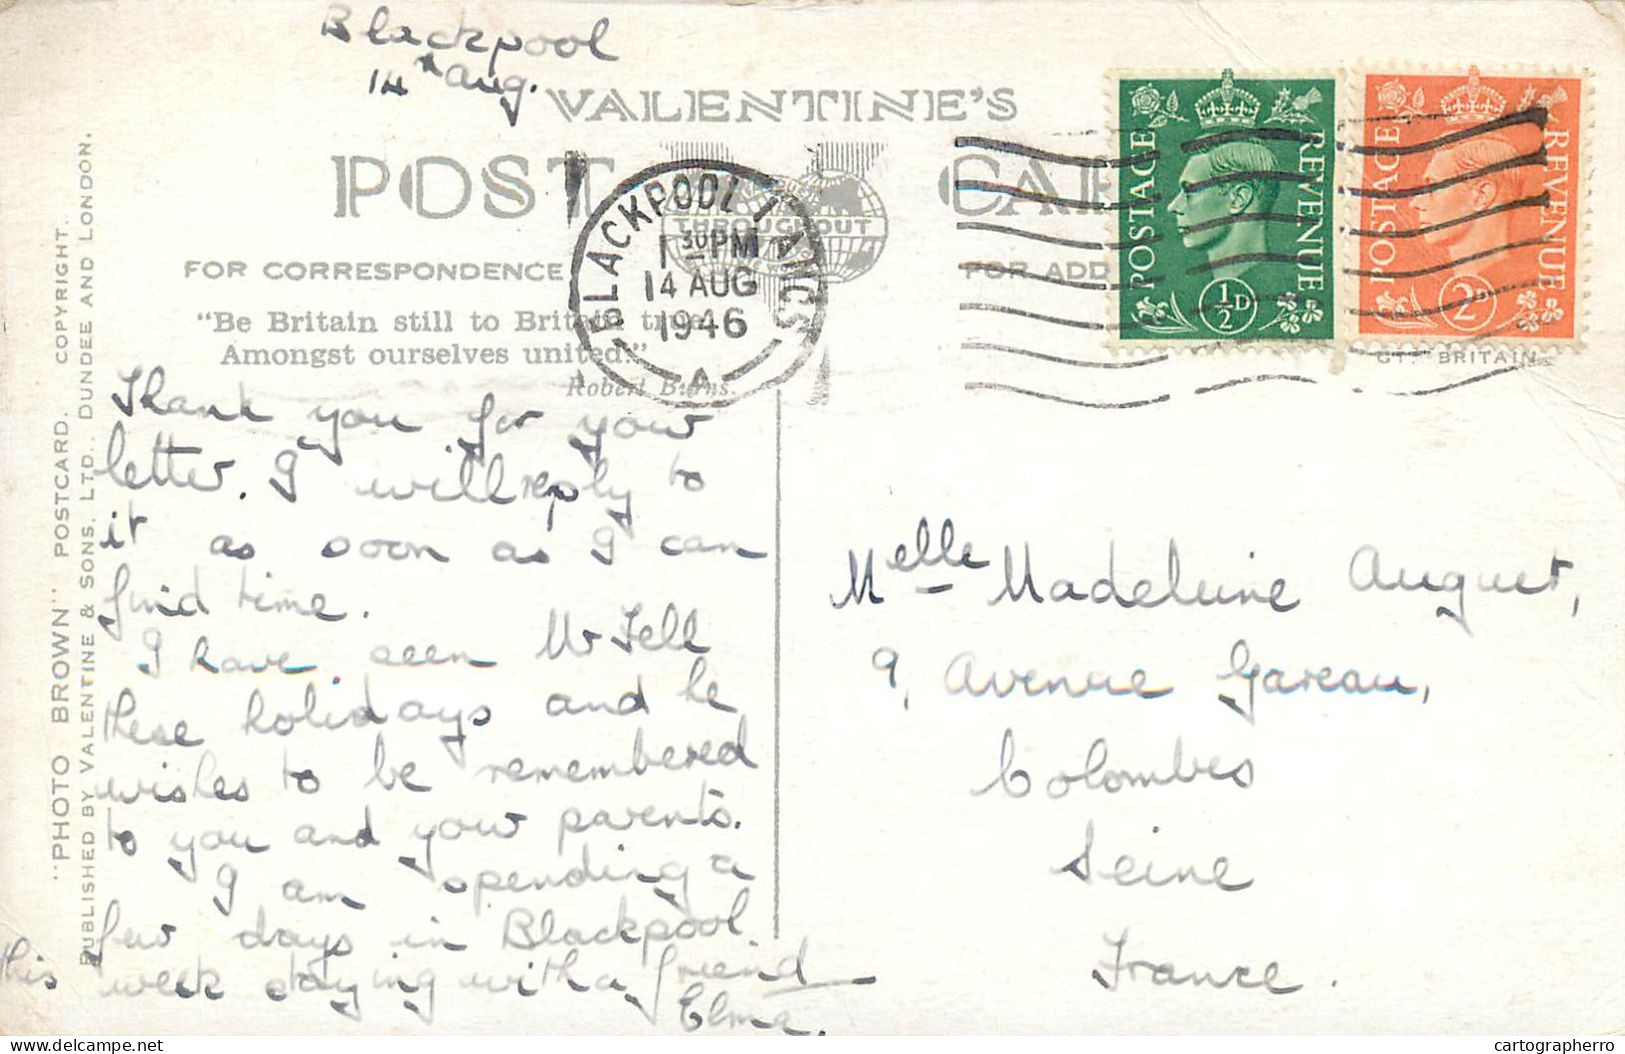 Blackpool
14th Aug.
VALENTINE'S
POST CAR
THROUGHOUT
FOR CORRESPONDENCE
FOR ADD
"Be Britain still to Britain true,
Amongst ourselves united."
Robert Burns.
BLACKPOOL LANCS
1 30 PM
14 AUG
1946
A
POSTAGE REVENUE
½D
POSTAGE REVENUE
2D
GT. BRITAIN
"PHOTO BROWN" POSTCARD. COPYRIGHT.
PUBLISHED BY VALENTINE & SONS, LTD., DUNDEE AND LONDON.
Thank you for your
letter. I will reply to
it as soon as I can
find time.
I have seen Mr Fell
these holidays and he
wishes to be remembered
to you and your parents.
I am spending a
few days in Blackpool
this week staying with a friend
Elma.
Melle Madeleine Auguet,
9, Avenue Gareau,
Colombes
Seine
France.
delcampe.net
cartographerro